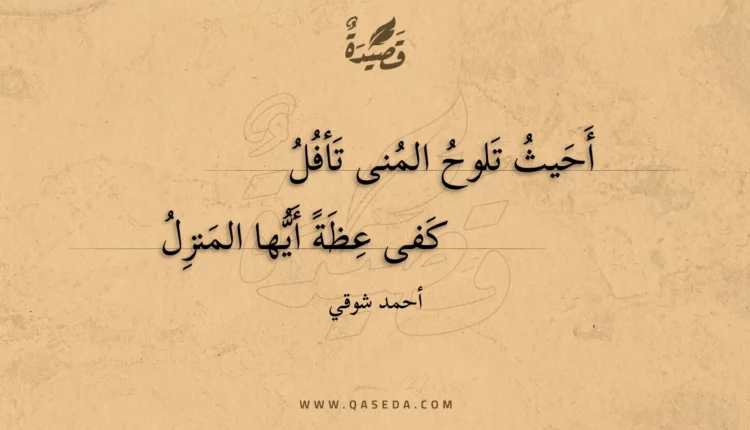 قَصِيدَةٌ
أَحَيثُ تَلوحُ المُنى تَأفُلُ
كَفى عِظَةً أَيُّها المَنزِلُ
أحمد شوقي
WWW.QASEDA.COM